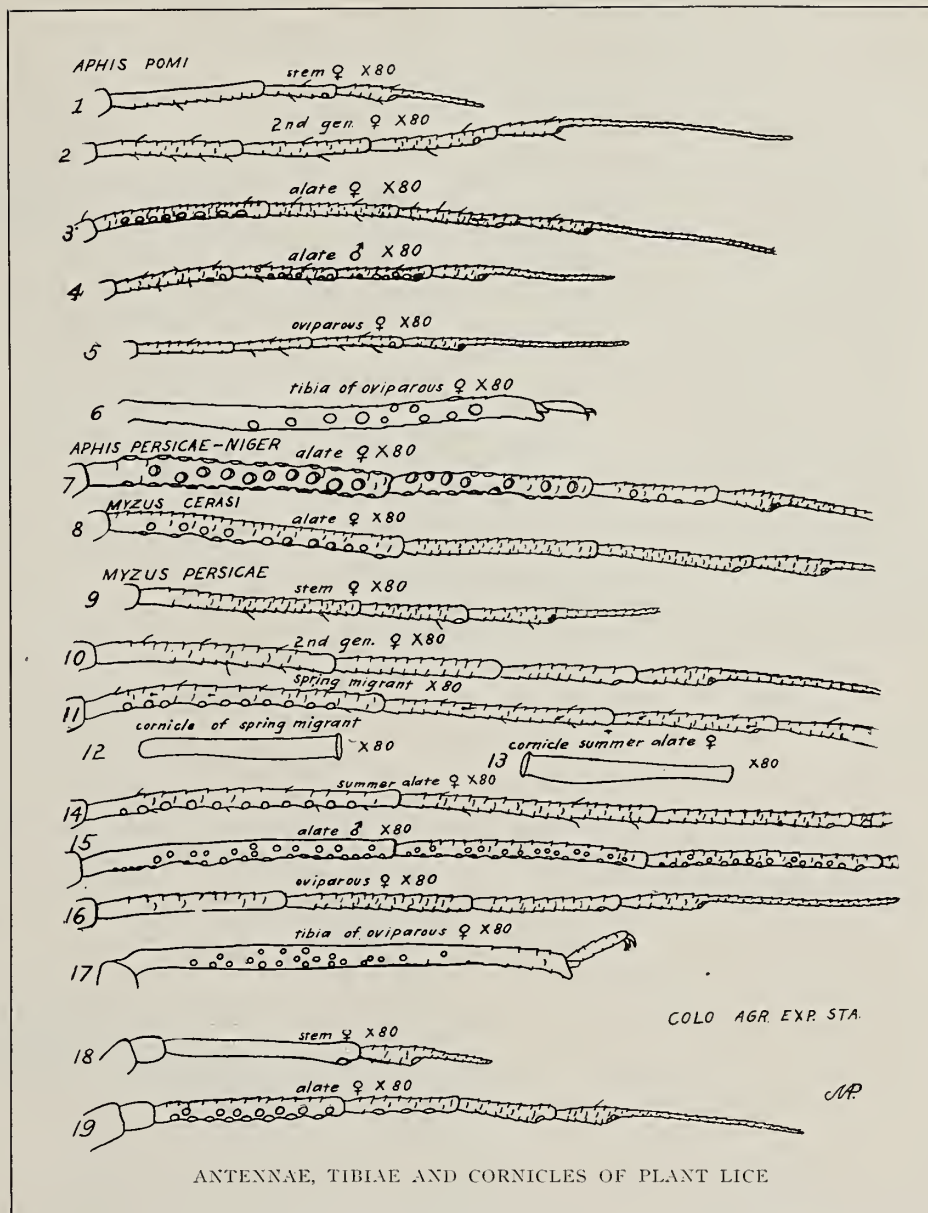 APHIS POMI
stem ♀ X80
1
2nd gen. ♀ X80
2
alate ♀ X80
3
alate ♂ X80
4
oviparous ♀ X80
5
tibia of oviparous ♀ X80
6
APHIS PERSICAE-NIGER alate ♀ X80
7
MYZUS CERASI
alate ♀ X80
8
MYZUS PERSICAE
stem ♀ X80
9
2nd gen. ♀ X80
10
spring migrant X80
11
cornicle of spring migrant
12 X80
cornicle summer alate ♀
13 X80
summer alate ♀ X80
14
alate ♂ X80
15
oviparous ♀ X80
16
tibia of oviparous ♀ X80
17
COLO AGR. EXP. STA.
stem ♀ X80
18
alate ♀ X 80
19
ANTENNAE, TIBIAE AND CORNICLES OF PLANT LICE